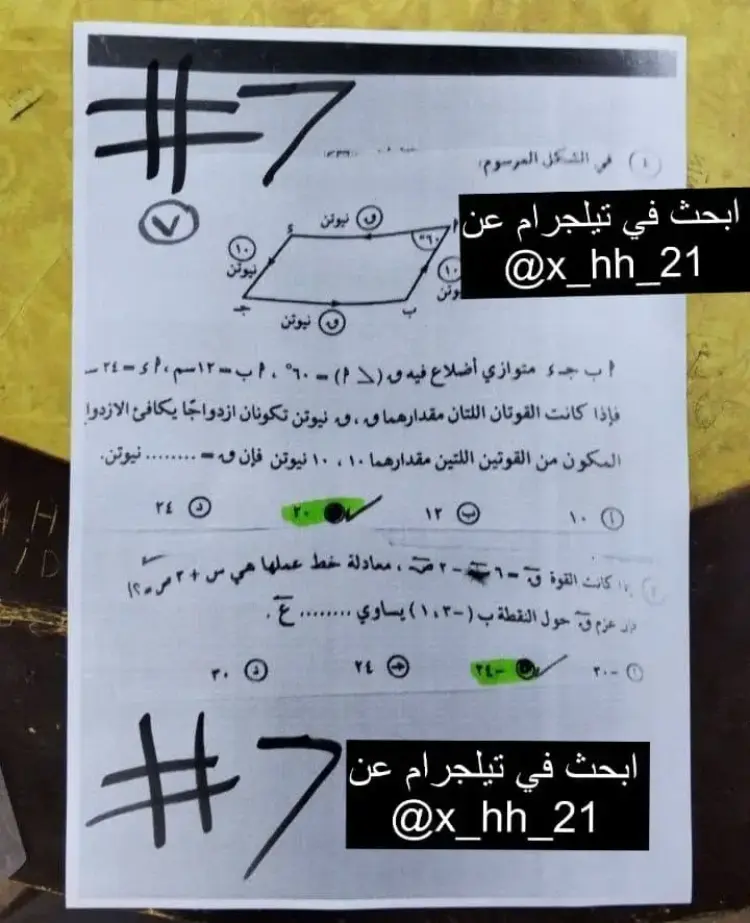 #7
٤ في الشكل المرسوم:
٧
ابحث في تيلجرام عن
@x_hh_21
ق نيوتن
٦٠°
ء
أ
١٠
نيوتن
١٠
نيوتن
جـ
ب
ق نيوتن
أ ب جـ ء متوازي أضلاع فيه ق (∠ أ) = ٦٠° ، أ ب = ١٢سم ، أ ء = ٢٤
فإذا كانت القوتان اللتان مقدارهما ق ، ق نيوتن تكونان ازدواجًا يكافئ الازدوا
المكون من القوتين اللتين مقدارهما ١٠ ، ١٠ نيوتن فإن ق = ........ نيوتن.
أ ١٠ ب ١٢ ٢٠ د ٢٤
كانت القوة ق = ٦ - ٢ ص ، معادلة خط عملها هي س + ٣ ص = ١٢
عزم ق حول النقطة ب (-٣ ، ١) يساوي ........ ع .
أ -٢٠ -٢٤ جـ ٢٤ د ٣٠
#7
ابحث في تيلجرام عن
@x_hh_21